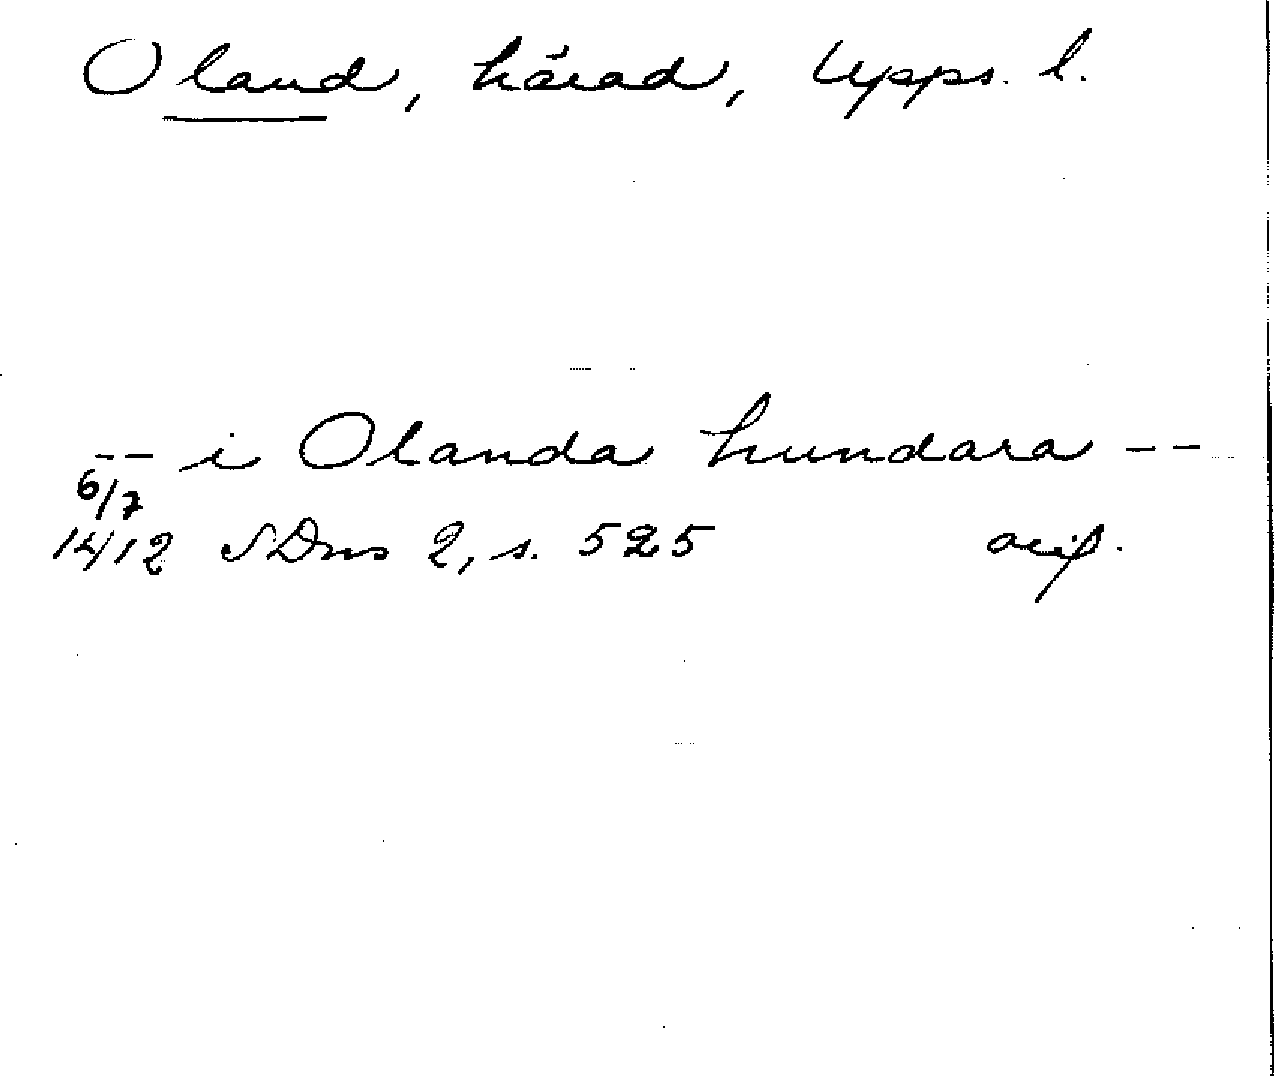 Oland, härad, Upps. l.
-- i Olanda hundara --
6/7
1412 SDns 2, s. 525 avs.